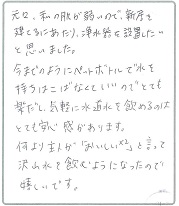 元々、私の肌が弱いので、新居を
建てるにあたり、浄水器を設置したい
と思いました。
今までのようにペットボトルで水を
持ちはこばなくていいのでとても
楽だし、気軽に水道水を飲めるのは
とても安心感があります。
何より主人が「おいしい!」と言って
沢山水を飲むようになったので
嬉しいです。